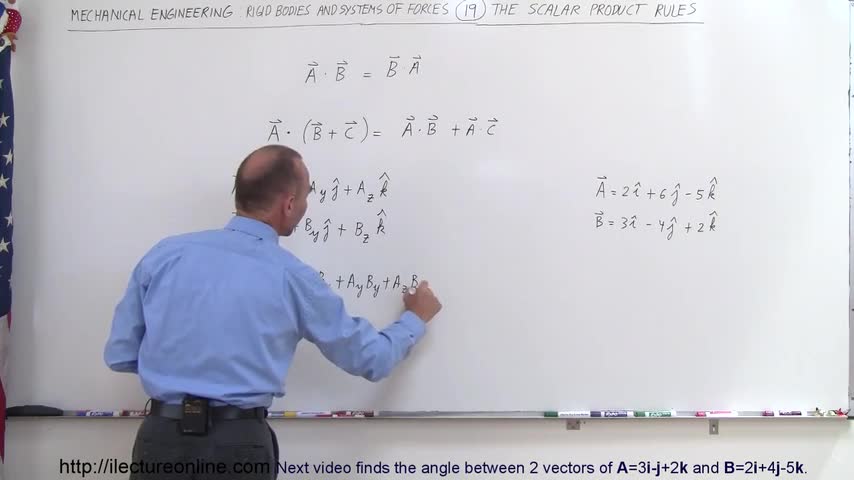 MECHANICAL ENGINEERING RIGID BODIES AND SYSTEMS OF FORCES 19 THE SCALAR PRODUCT RULES
A⃗ · B⃗ = B⃗ · A⃗
A⃗ · (B⃗ + C⃗) = A⃗ · B⃗ + A⃗ · C⃗
A_y ĵ + A_z k̂
+ B_y ĵ + B_z k̂
+ A_y B_y + A_z B
A⃗ = 2î + 6ĵ - 5k̂
B⃗ = 3î - 4ĵ + 2k̂
http://ilectureonline.com Next video finds the angle between 2 vectors of A=3i-j+2k and B=2i+4j-5k.